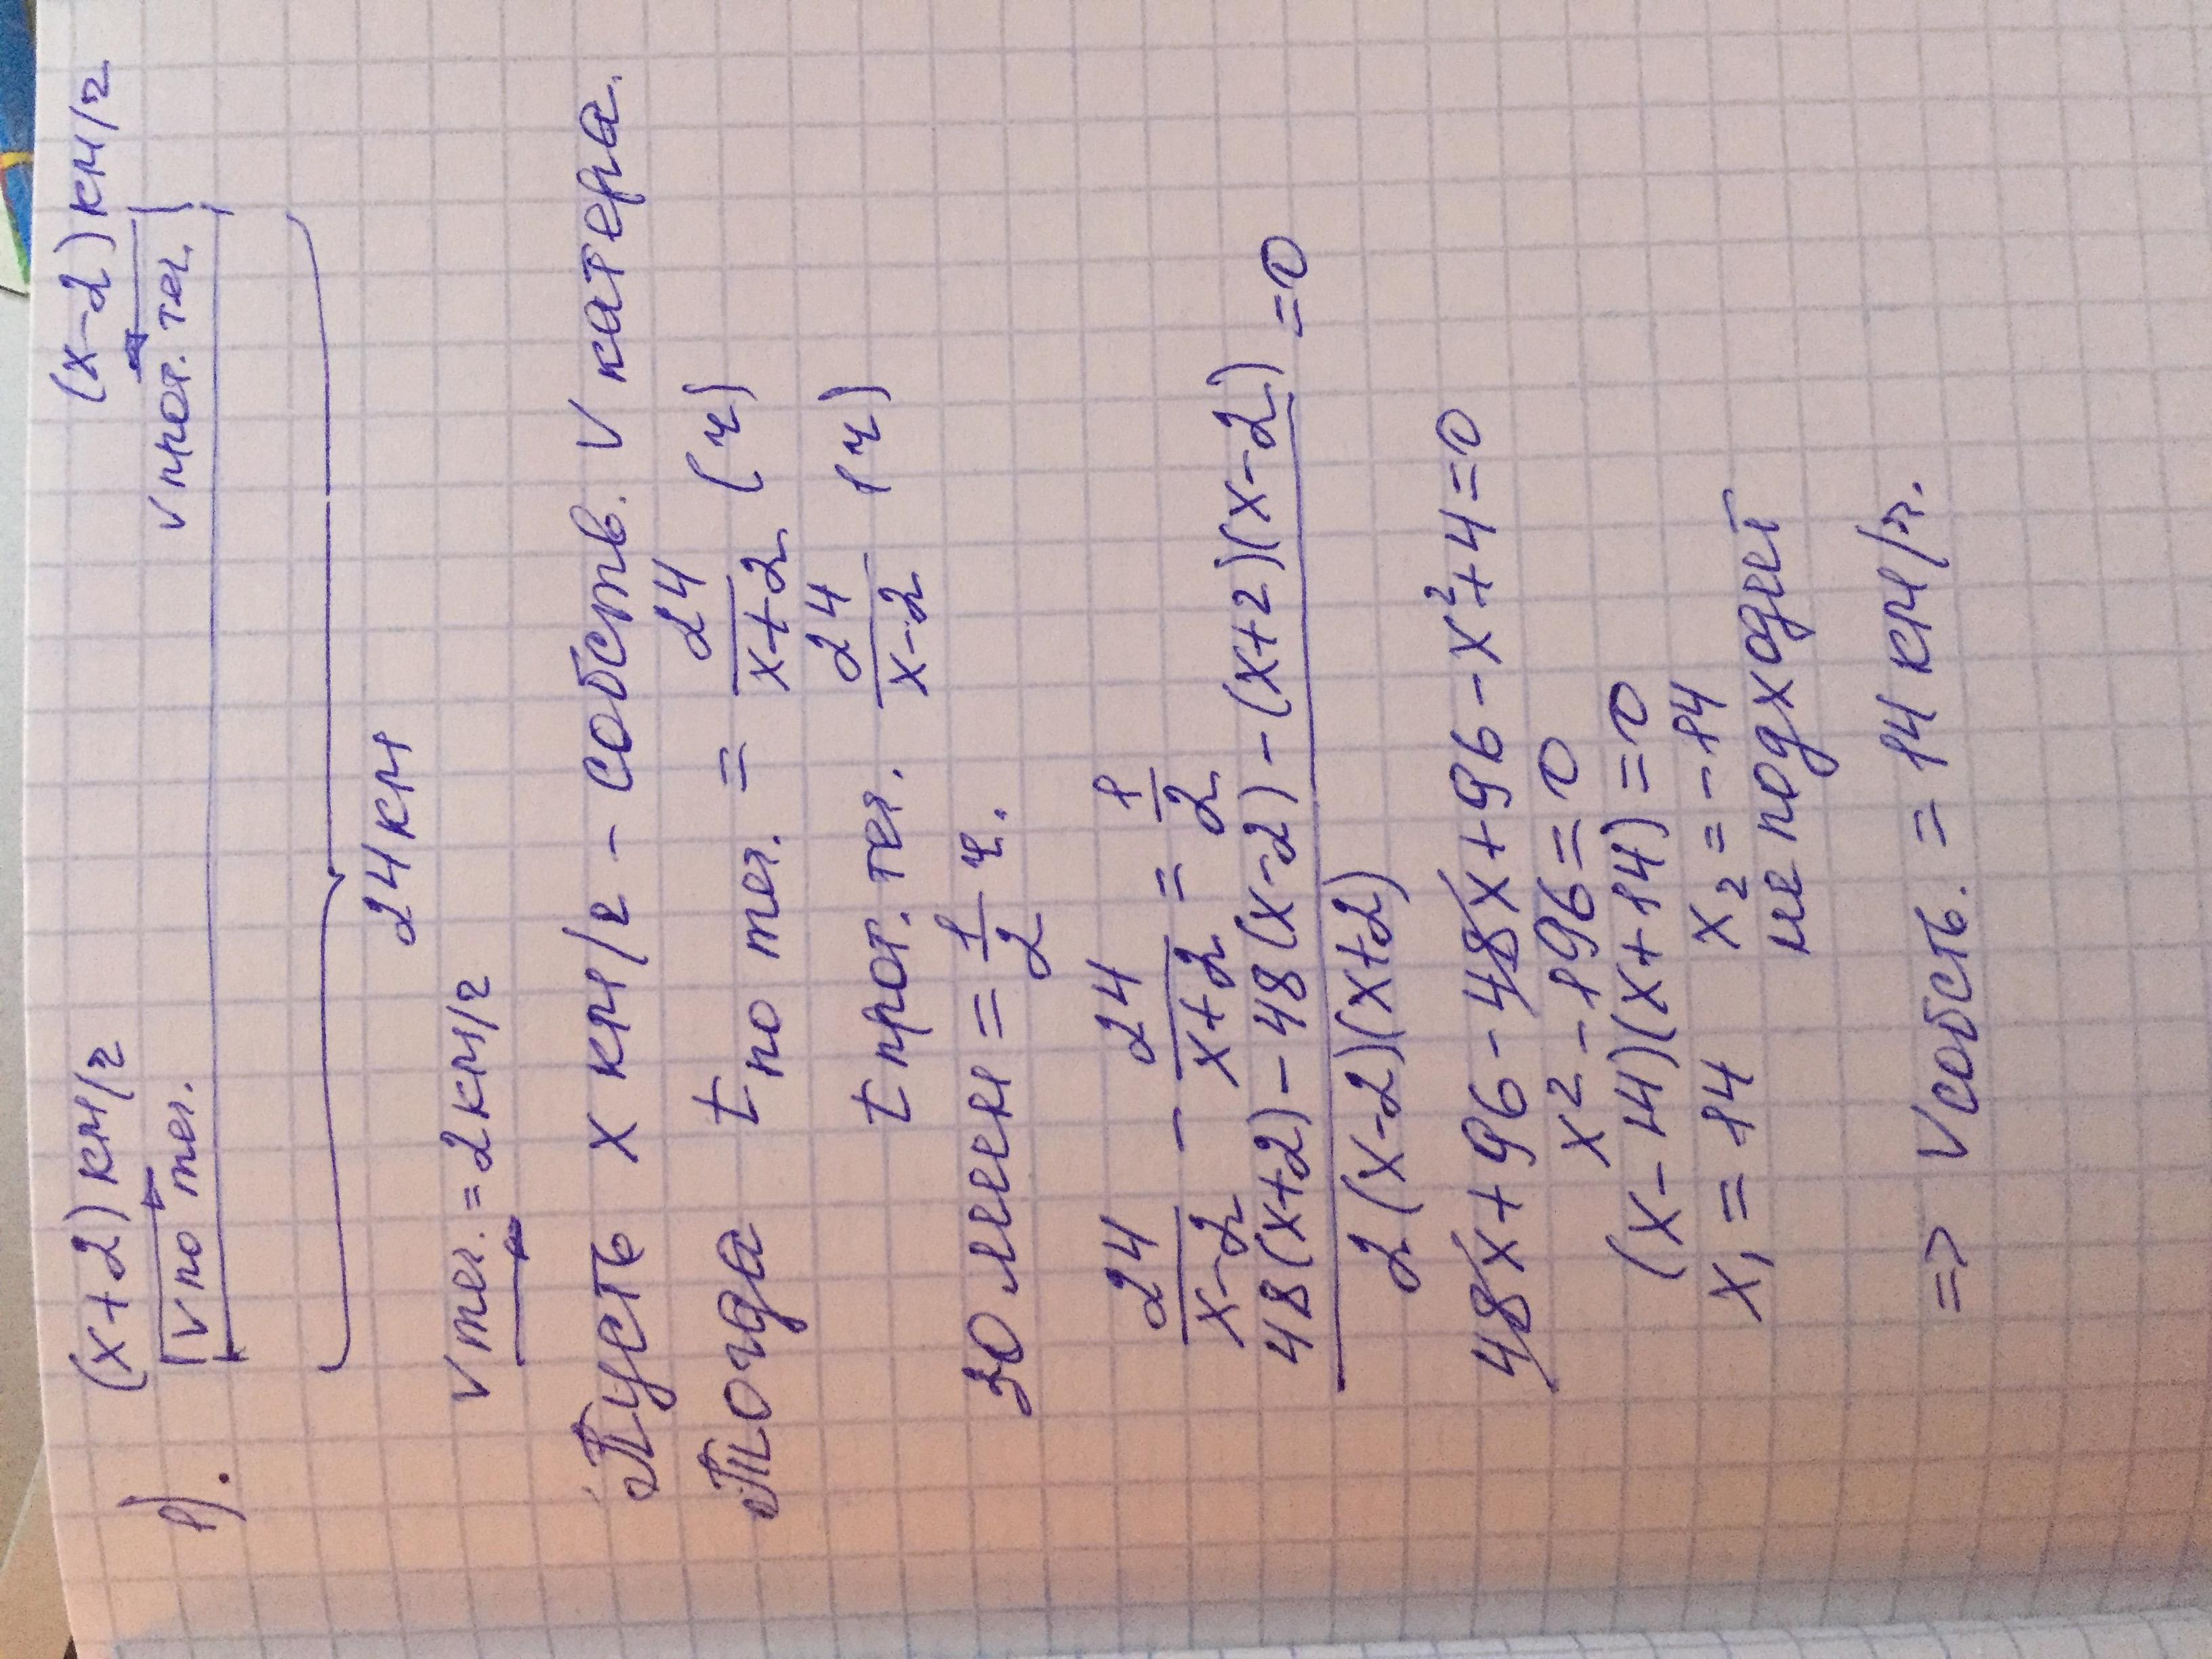 1).
(x+2) км/ч (x-2) км/ч
v по теч. v прот. теч.
24 км
v теч. = 2 км/ч
Пусть x км/ч - собств. v катера.
Тогда t по теч. = 24/(x+2) (ч)
t прот. теч. 24/(x-2) (ч)
30 мин = 1/2 ч.
24/(x-2) - 24/(x+2) = 1/2
48(x+2) - 48(x-2) - (x+2)(x-2) = 0
2(x-2)(x+2)
48x + 96 - 48x + 96 - x² + 4 = 0
x² - 196 = 0
(x-14)(x+14) = 0
x₁ = 14 x₂ = -14
не подходит
=> v собств. = 14 км/ч.